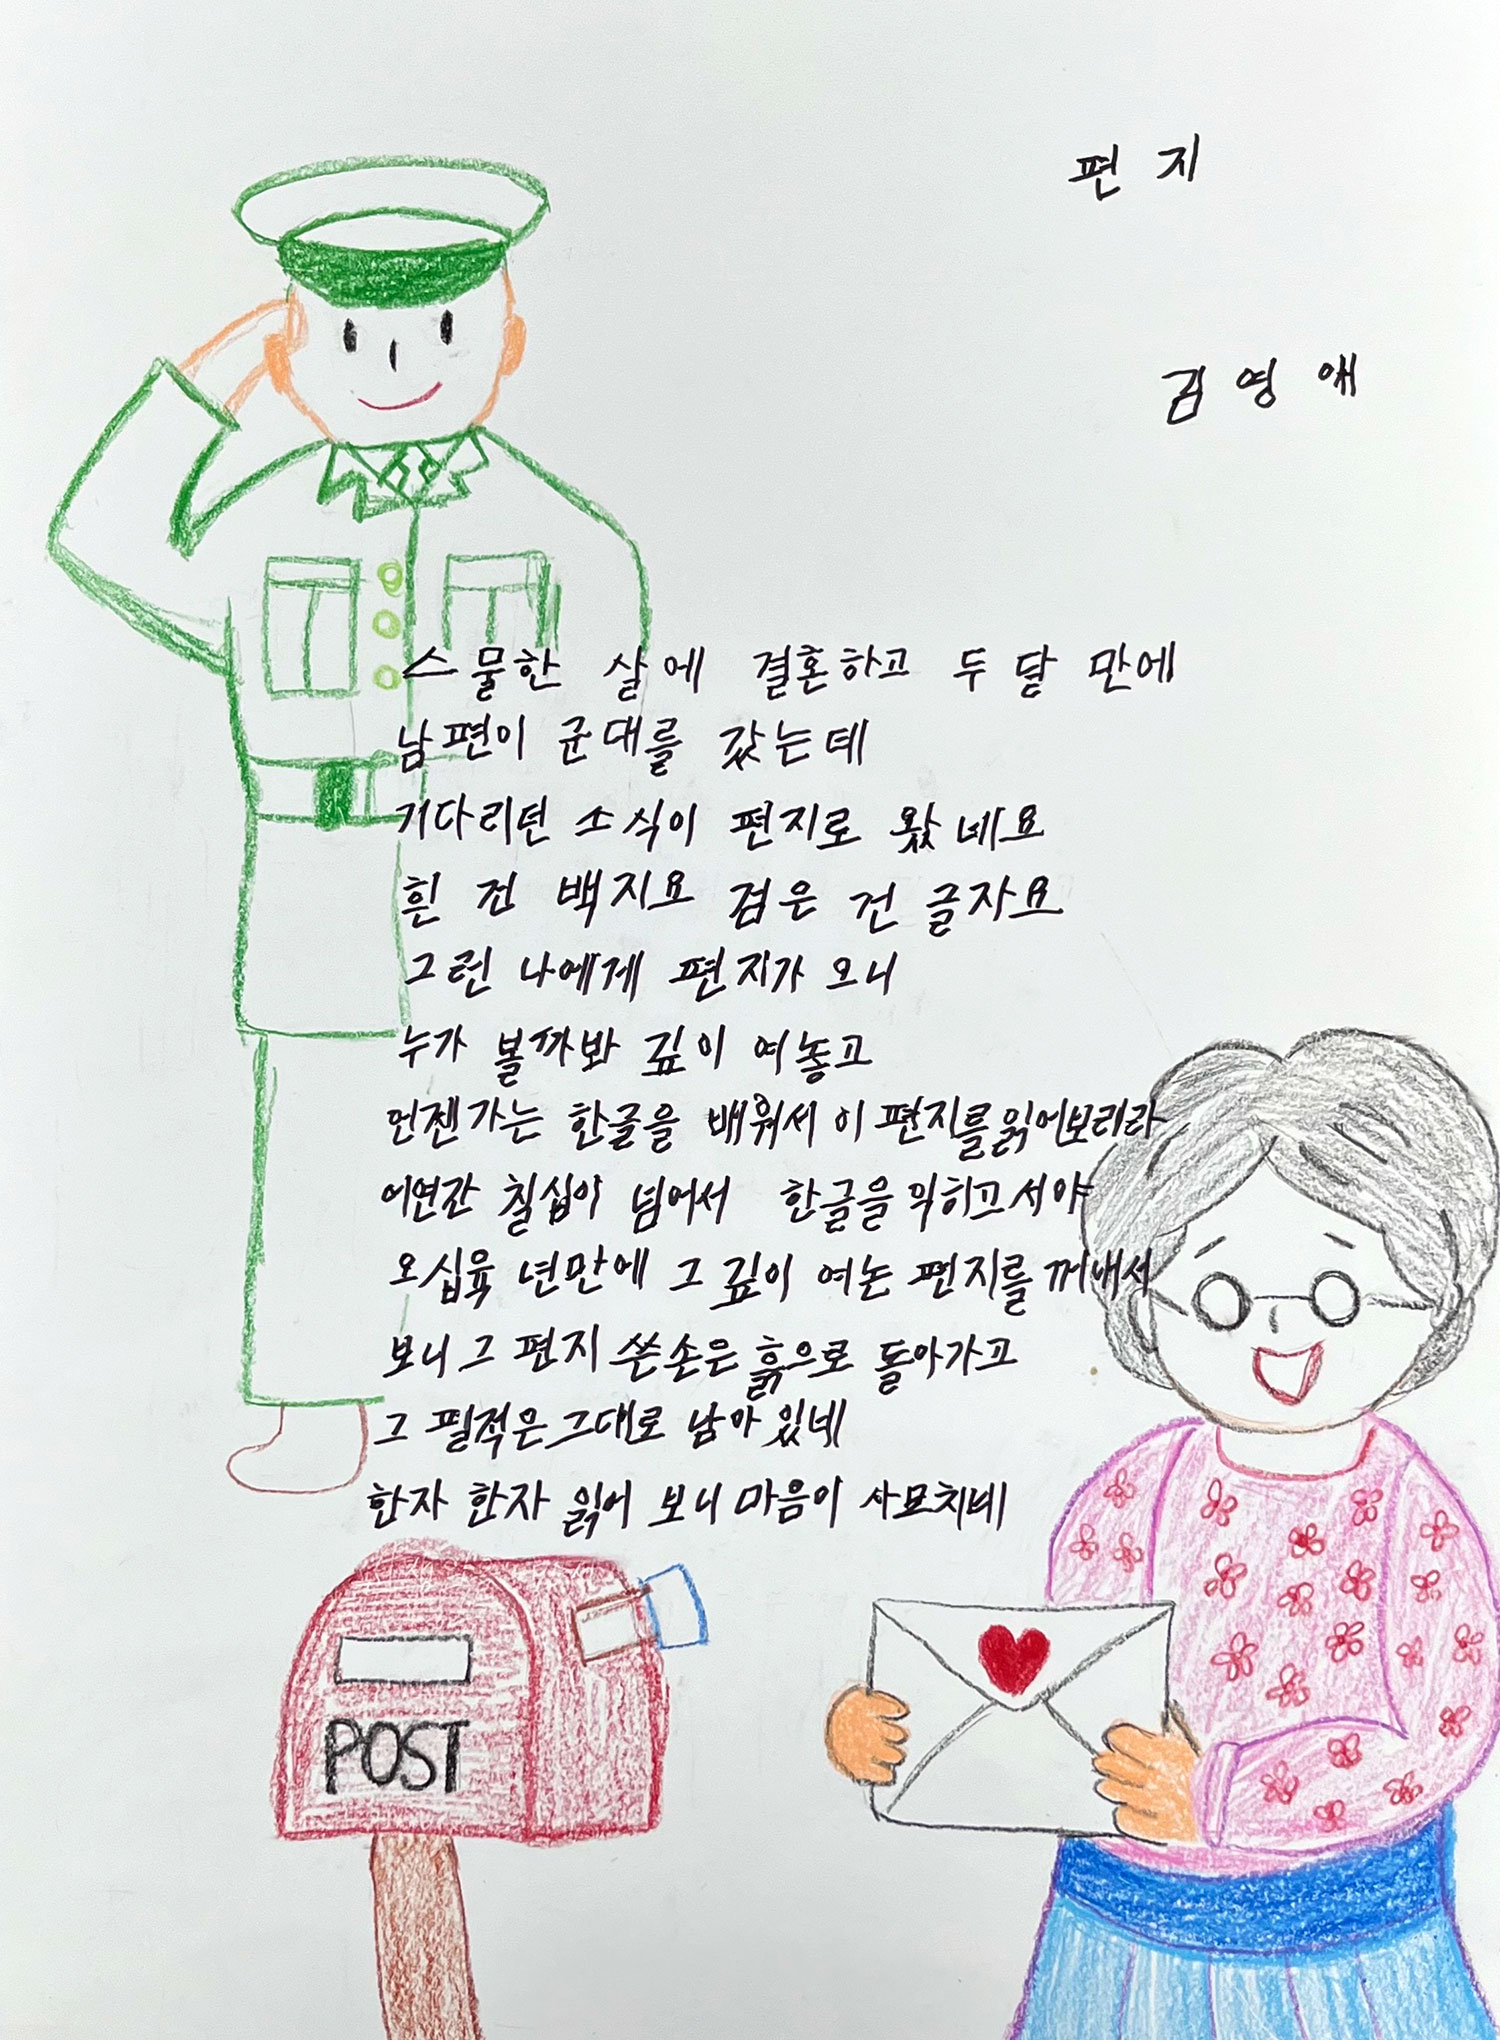 편지
김영애
스물한 살에 결혼하고 두 달 만에
남편이 군대를 갔는데
기다리던 소식이 편지로 왔네요
흰 건 백지요 검은 건 글자요
그런 나에게 편지가 오니
누가 볼까봐 깊이 여놓고
언젠가는 한글을 배워서 이 편지를 읽어보리라
어연간 칠십이 넘어서 한글을 익히고서야
오십육 년만에 그 깊이 여논 편지를 꺼내서
보니 그 편지 쓴손은 흙으로 돌아가고
그 필적은 그대로 남아 있네
한자 한자 읽어 보니 마음이 사묘치네
POST